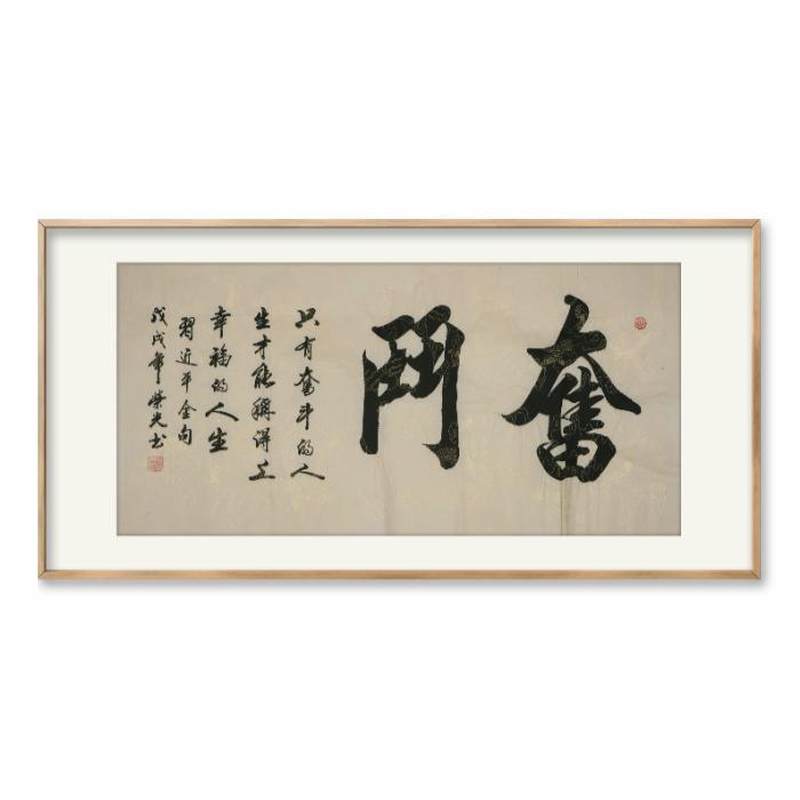 奮鬥
只有奮斗的人
生才能稱得上
幸福的人生
習近平金句
戊戌年榮光書